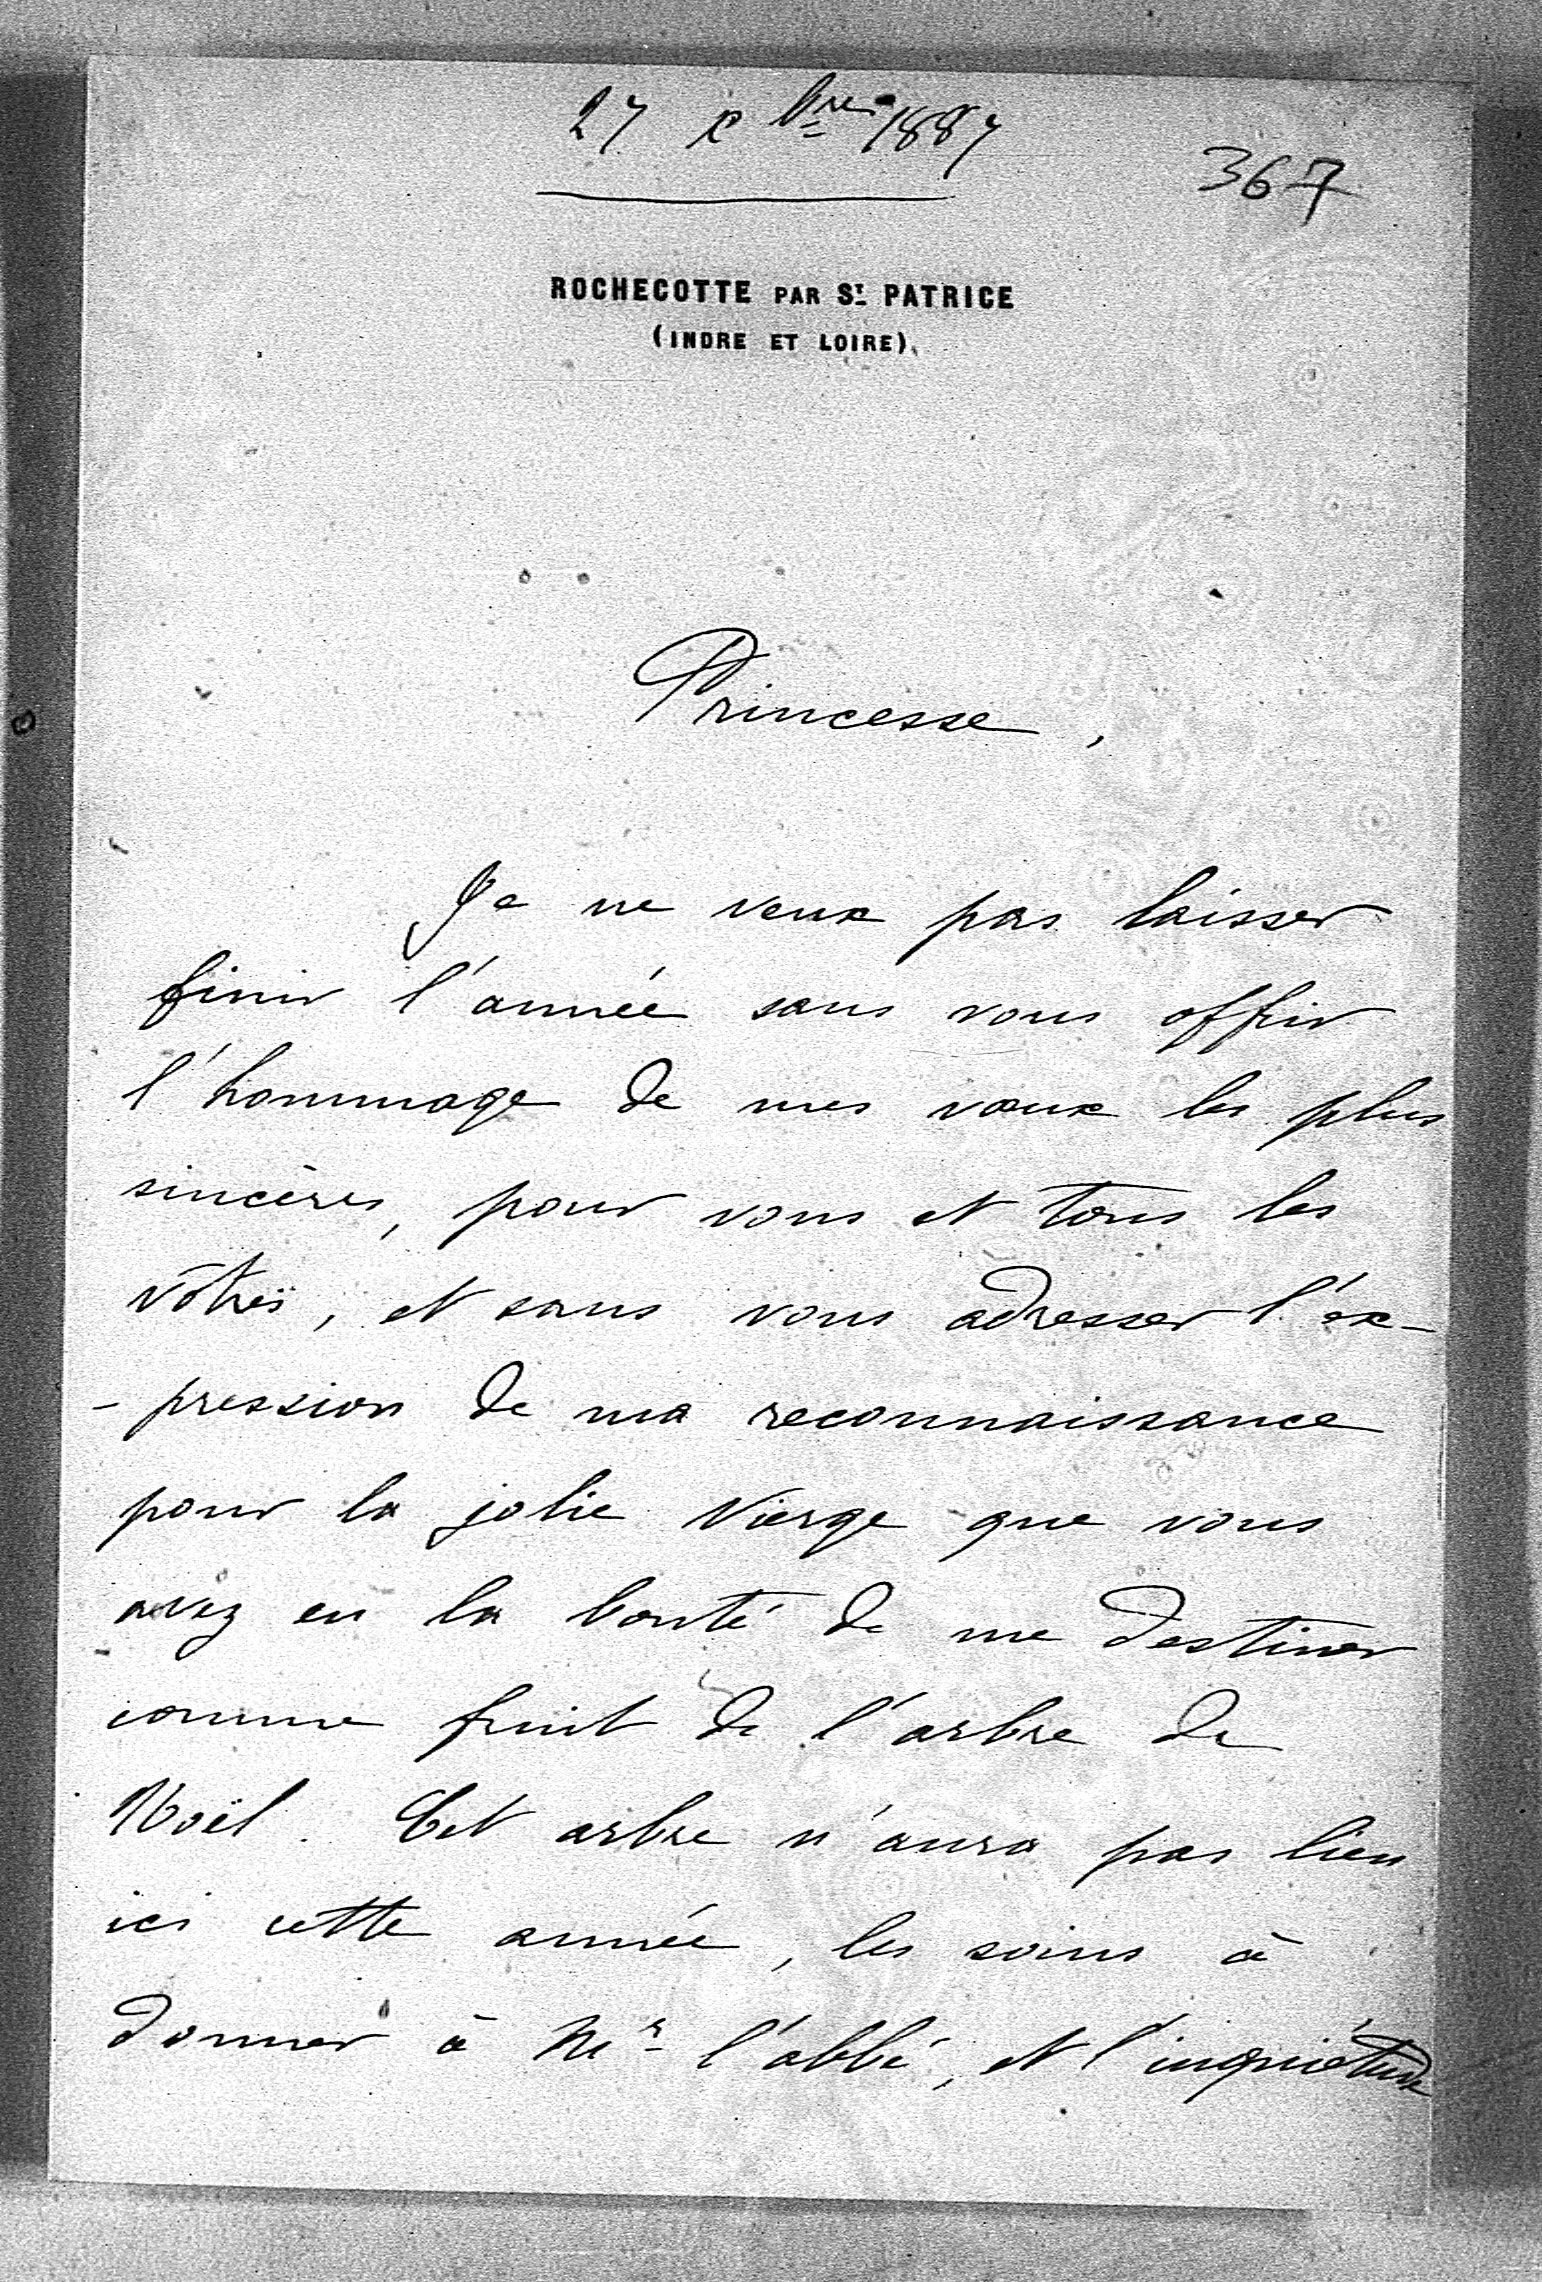 27 Xbre 1887
367
ROCHECOTTE PAR ST. PATRICE
(INDRE ET LOIRE).
Princesse,
Je ne veux pas laisser
finir l'année sans vous offrir
l'hommage de mes vœux les plus
sincères, pour vous et tous les
vôtres, et sans vous adresser l'ex-
-pression de ma reconnaissance
pour la jolie Vierge que vous
avez eu la bonté de me destiner
comme fruit de l'arbre de
Noël. Cet arbre n'aura pas lieu
ici cette année, les soins à
donner à Mr l'abbé, et l'inquiétude